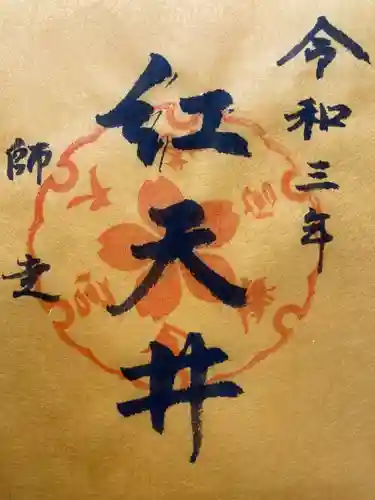 令和三年
紅天井
師走